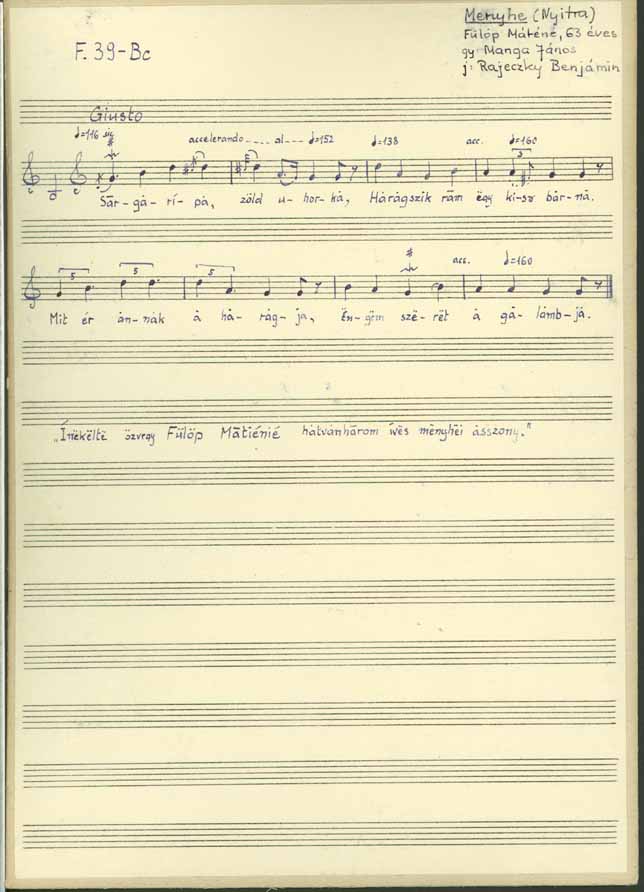 Menyhe (Nyitra)
Fülöp Máténé, 63 éves
gy: Manga János
j: Rajeczky Benjámin
F. 39-Bc
Giusto
♩=116 accelerando .... al --- ♩=152 ♩=138 acc. ♩=160
3
Sár-gá-ri-pá, zöld u-hor-ká, Hárágszik rám ëgy ki-sr bár-ná.
5 5 5 acc. ♩=160
Mit ér án-nák á há-rág-ja, Ën-gëm szë-rët á gá-lámb-já.
„Ínëkëltë özvegy Fülöp Mātiénié hátvánhárom íwës mënyhëi ásszony."